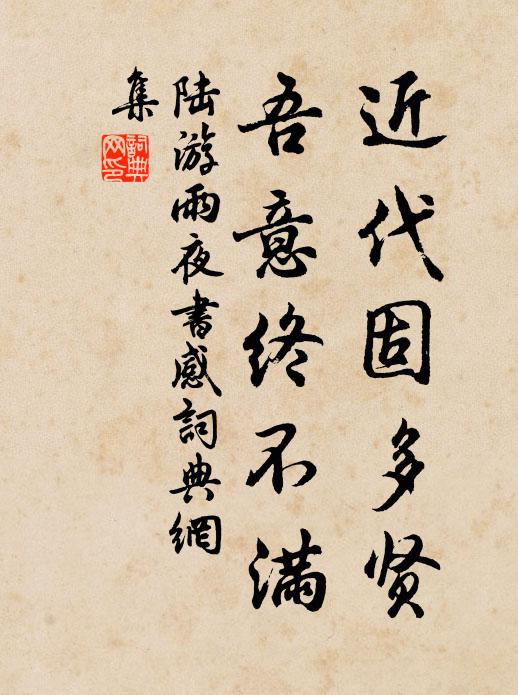 近代固多贤
吾意终不满
陆游雨夜書感詞典網
集
詞典
网印